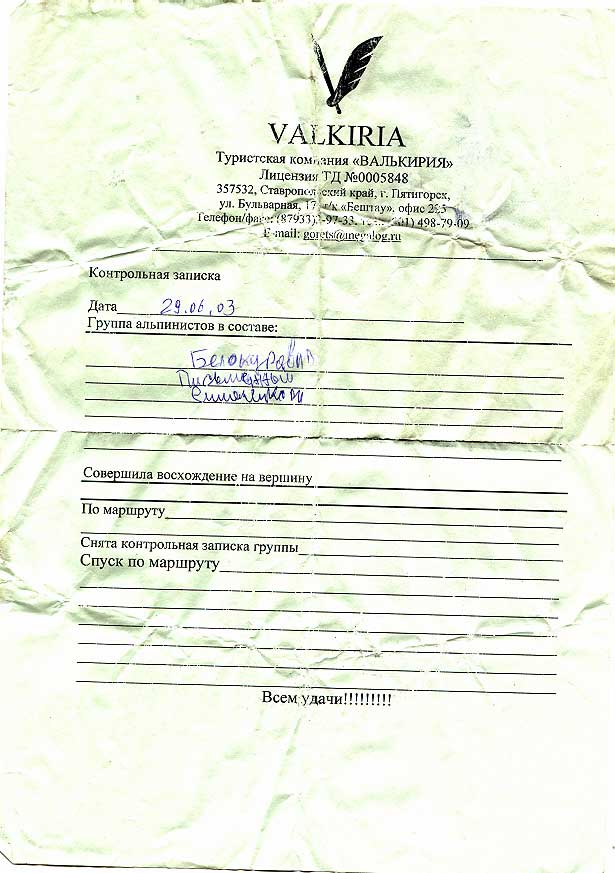 VALKIRIA
Туристская компания «ВАЛЬКИРИЯ»
Лицензия ТД №0005848
357532, Ставропольский край, г. Пятигорск,
ул. Бульварная, 17, г/к «Бештау», офис
Телефон/факс: 498-79-09
E-mail:
Контрольная записка
Дата 29.06.03
Группа альпинистов в составе:
Совершила восхождение на вершину
По маршруту
Снята контрольная записка группы
Спуск по маршруту
Всем удачи!!!!!!!!!